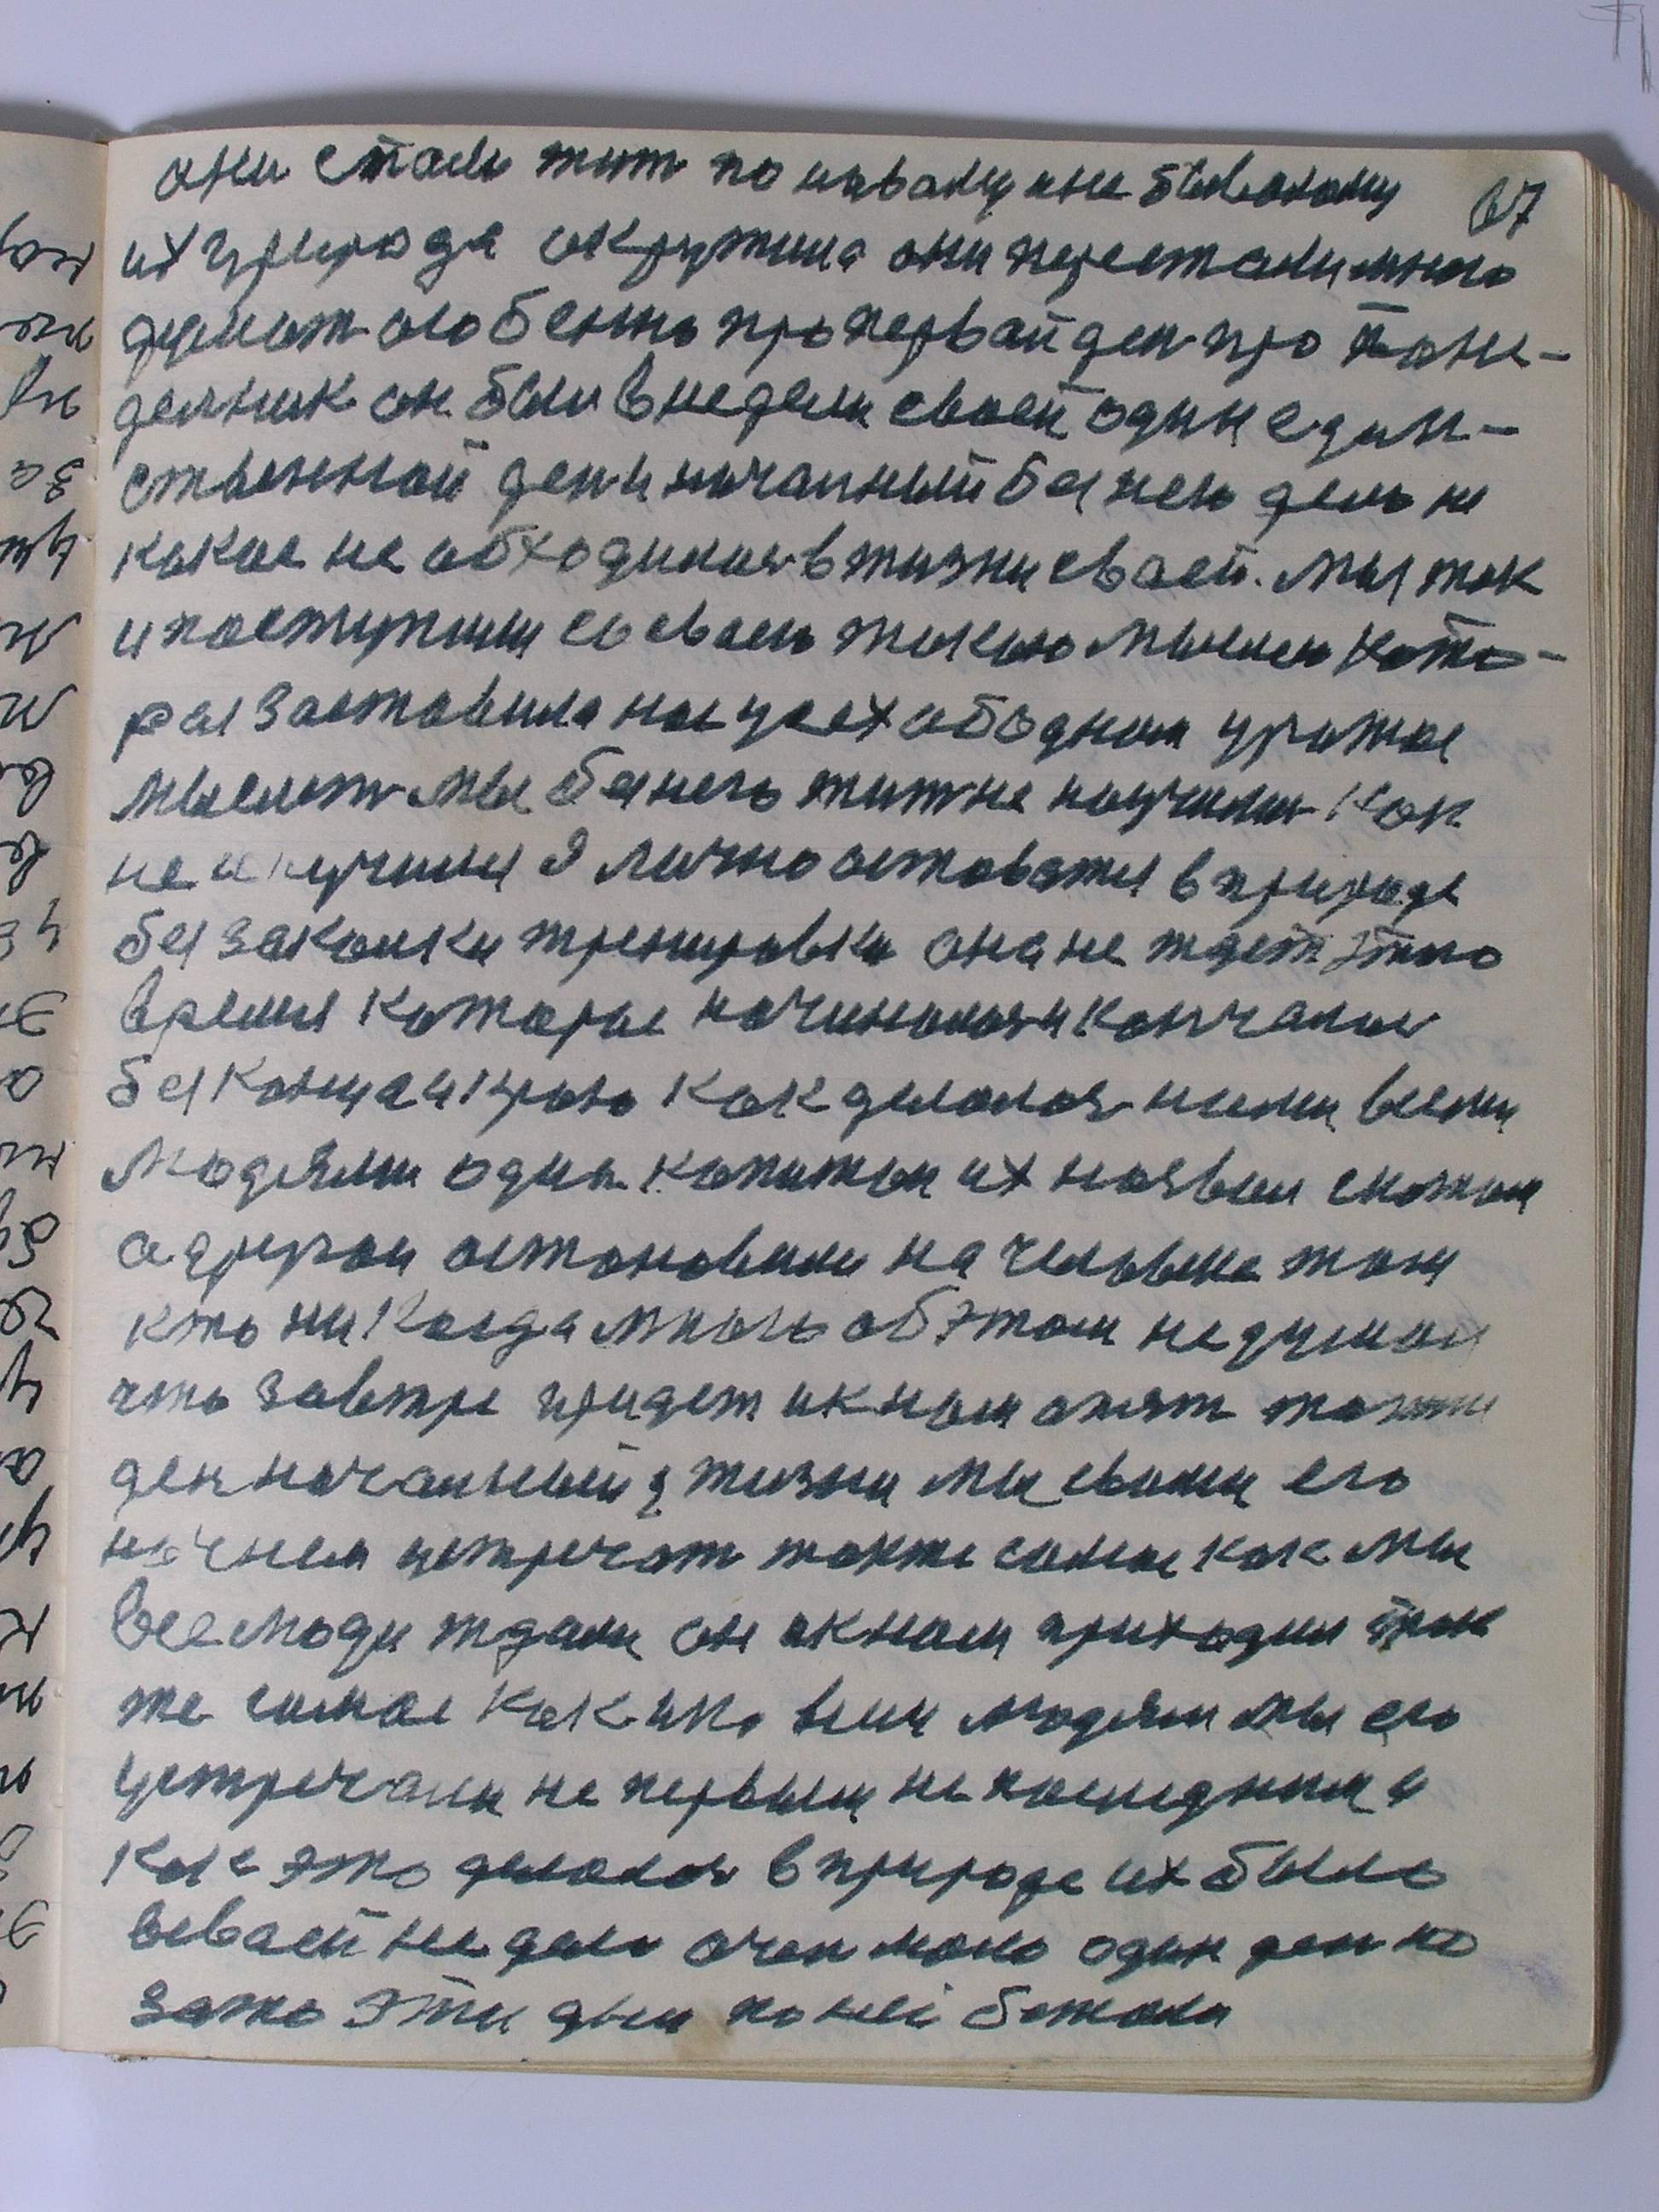 они стали жит по новому не бывалому 67
их природа окружила они перестали много
думат особенно про первай ден про поне-
делник он был в недели своей один един-
ственной ден и началный без нево дело ни
какое не обходилось в жизни своей. Мы так
и поступили со своею такою мыслею кото-
рая заставила нас усех об одном урожае
мыслит мы без него жит не научилис как
не научился я лично оставатся в природе
без закалки тренировки она не ждет этого
время которое начиналося и кончалос
без конца и краю как делалос ними всеми
людями одна капитал их назвал
а другои остановили на человеке том
кто никогда много об этом не думал
что завтре придет и к нам опят такжи
ден началный у жизни мы сваим его
начнем устречат также самое как мы
все люди ждали он и к нам приходил так
же самое как и ко всем людям мы его
устречали не первыи не последним и
как это делалос в природе их было
в своей недели очен мало один ден но
зато эти дни по ней бежали